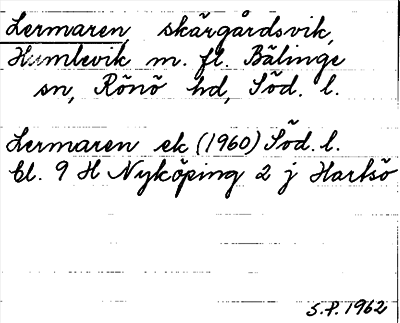 Lermaren, skärgårdsvik,
Humlevik m. fl. Bälinge
sn, Rönö hd, Söd. l.
Lermaren ek (1960) Söd. l.
bl. 9 H Nyköping 2 j Hartsö
S.P. 1962